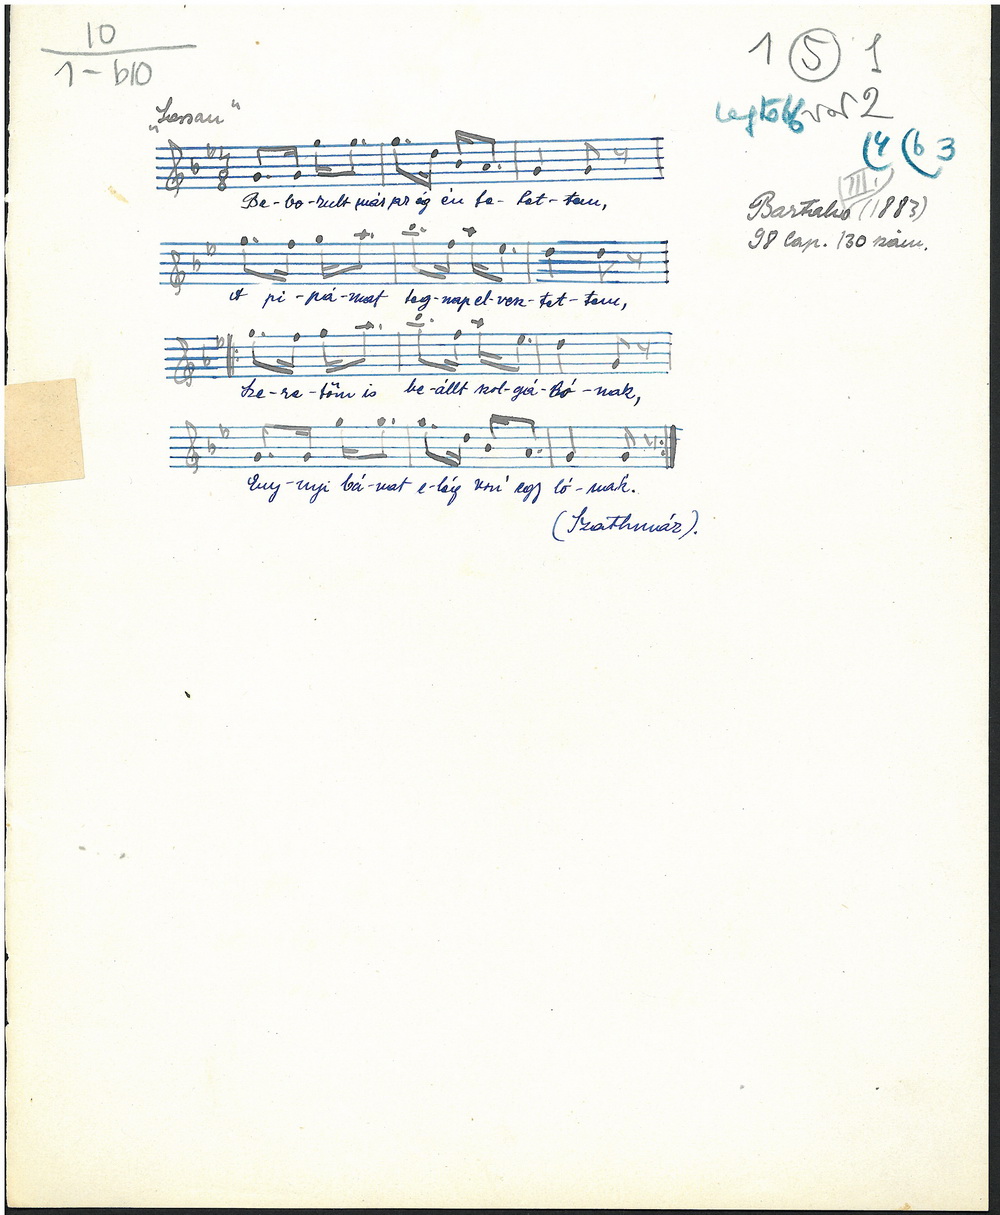 10
1-b10
1 5 1
"Lassan"
var 2
(4 (b3
III.
Bartalus (1883)
98 lap. 130 szám.
4
8
Be-bo-rult már az ég én fe-let-tem,
A pi-pá-mat teg-nap el-vesz-tet-tem,
Sze-re-tőm is be-állt szol-gá-ló-nak,
Eny-nyi bá-nat e-lég vón' egy ló-nak.
(Szathmár).